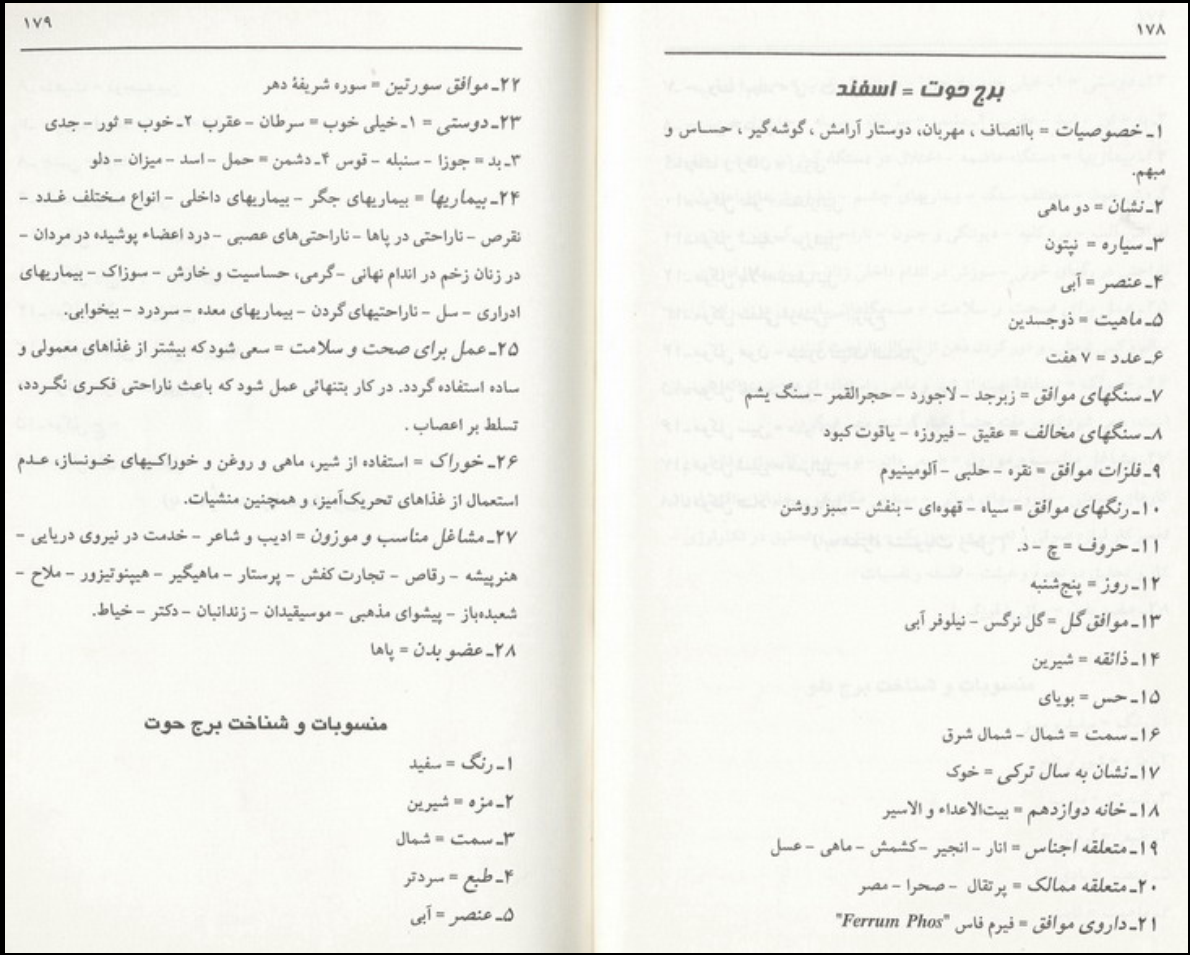 ۱۷۸
برج حوت = اسفند
۱ـ خصوصیات = باانصاف ، مهربان، دوستار آرامش ، گوشه‌گیر ، حساس و
مبهم.
۲ـ نشان = دو ماهی
۳ـ سیاره = نپتون
۴ـ عنصر = آبی
۵ـ ماهیت = ذوجسدین
۶ـ عدد = ۷ هفت
۷ـ سنگهای موافق = زبرجد - لاجورد - حجرالقمر - سنگ یشم
۸ـ سنگهای مخالف = عقیق - فیروزه - یاقوت کبود
۹ـ فلزات موافق = نقره - حلبی - آلومینیوم
۱۰ـ رنگهای موافق = سیاه - قهوه‌ای - بنفش - سبز روشن
۱۱ـ حروف = چ - د.
۱۲ـ روز = پنج‌شنبه
۱۳ـ موافق گل = گل نرگس - نیلوفر آبی
۱۴ـ ذائقه = شیرین
۱۵ـ حس = بویای
۱۶ـ سمت = شمال - شمال شرق
۱۷ـ نشان به سال ترکی = خوک
۱۸ـ خانه دوازدهم = بیت‌الاعداء و الاسیر
۱۹ـ متعلقه اجناس = انار - انجیر - کشمش - ماهی - عسل
۲۰ـ متعلقه ممالک = پرتقال - صحرا - مصر
۲۱ـ داروی موافق = فیرم فاس "Ferrum Phos"
۱۷۹
۲۲ـ موافق سورتین = سوره شریفهٔ دهر
۲۳ـ دوستی = ۱ـ خیلی خوب = سرطان - عقرب ۲ـ خوب = ثور - جدی
۳ـ بد = جوزا - سنبله - قوس ۴ـ دشمن = حمل - اسد - میزان - دلو
۲۴ـ بیماریها = بیماریهای جگر - بیماریهای داخلی - انواع مختلف غدد -
نقرص - ناراحتی در پاها - ناراحتی‌های عصبی - درد اعضاء پوشیده در مردان -
در زنان زخم در اندام نهانی - گرمی، حساسیت و خارش - سوزاک - بیماریهای
ادراری - سل - ناراحتیهای گردن - بیماریهای معده - سردرد - بیخوابی.
۲۵ـ عمل برای صحت و سلامت = سعی شود که بیشتر از غذاهای معمولی و
ساده استفاده گردد. در کار بتنهائی عمل شود که باعث ناراحتی فکری نگردد،
تسلط بر اعصاب .
۲۶ـ خوراک = استفاده از شیر، ماهی و روغن و خوراکیهای خونساز، عدم
استعمال از غذاهای تحریک‌آمیز و همچنین منشیات.
۲۷ـ مشاغل مناسب و موزون = ادیب و شاعر - خدمت در نیروی دریایی -
هنرپیشه - رقاص - تجارت کفش - پرستار - ماهیگیر - هیپنوتیزور - ملاح -
شعبده‌باز - پیشوای مذهبی - موسیقیدان - زندانبان - دکتر - خیاط.
۲۸ـ عضو بدن = پاها
منسوبات و شناخت برج حوت
۱ـ رنگ = سفید
۲ـ مزه = شیرین
۳ـ سمت = شمال
۴ـ طبع = سردتر
۵ـ عنصر = آبی